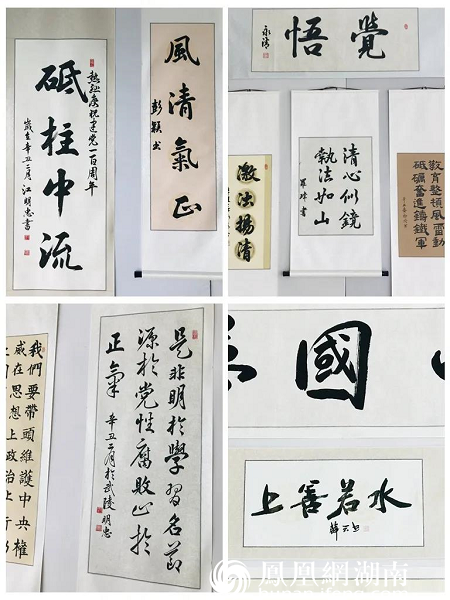 熱烈慶祝建党一百周年
砥柱中流
歲在辛丑二月江明忠書
風清氣正
彭穎书
覺悟
永清
激濁揚清
清心似鏡
執法如山
教育整頓風雷動
砥礪奮進鑄鐵軍
我們要帶頭維護中央權
威在思想上政治上行
是非明於學習名節
源於党性腐敗止於
正氣
辛丑二月於武陵明忠
國
上善若水
鳳凰網湖南
hunan.ifeng.com